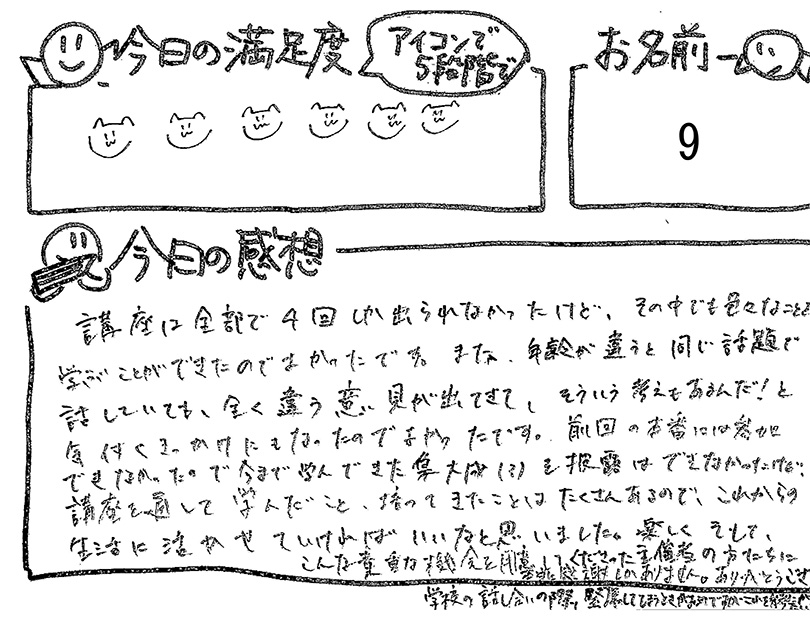 今日の満足度
アイコンで
5段階で
お名前
9
今日の感想
講座は全部で4回しか出られなかったけど、その中でも色々なことを
学ぶことができたのでよかったです。また、年齢が違うと同じ話題で
話していても、全く違う意見が出てきて、そういう考えもあるんだ!と
気付くきっかけにもなったのでよかったです。前回の本番には参加
できなかったので今まで学んできた集大成(?)を披露はできなかったけど、
講座を通して学んだこと、培ってきたことはたくさんあるので、これからの
生活に活かせていければいいなと思いました。楽しくそして、
こんな貴重な機会を開催してくださった主催者の方たちに
感謝しかありません。ありがとうござ
学校の話し合いの際、緊張してしまうときがあるのですがこれを